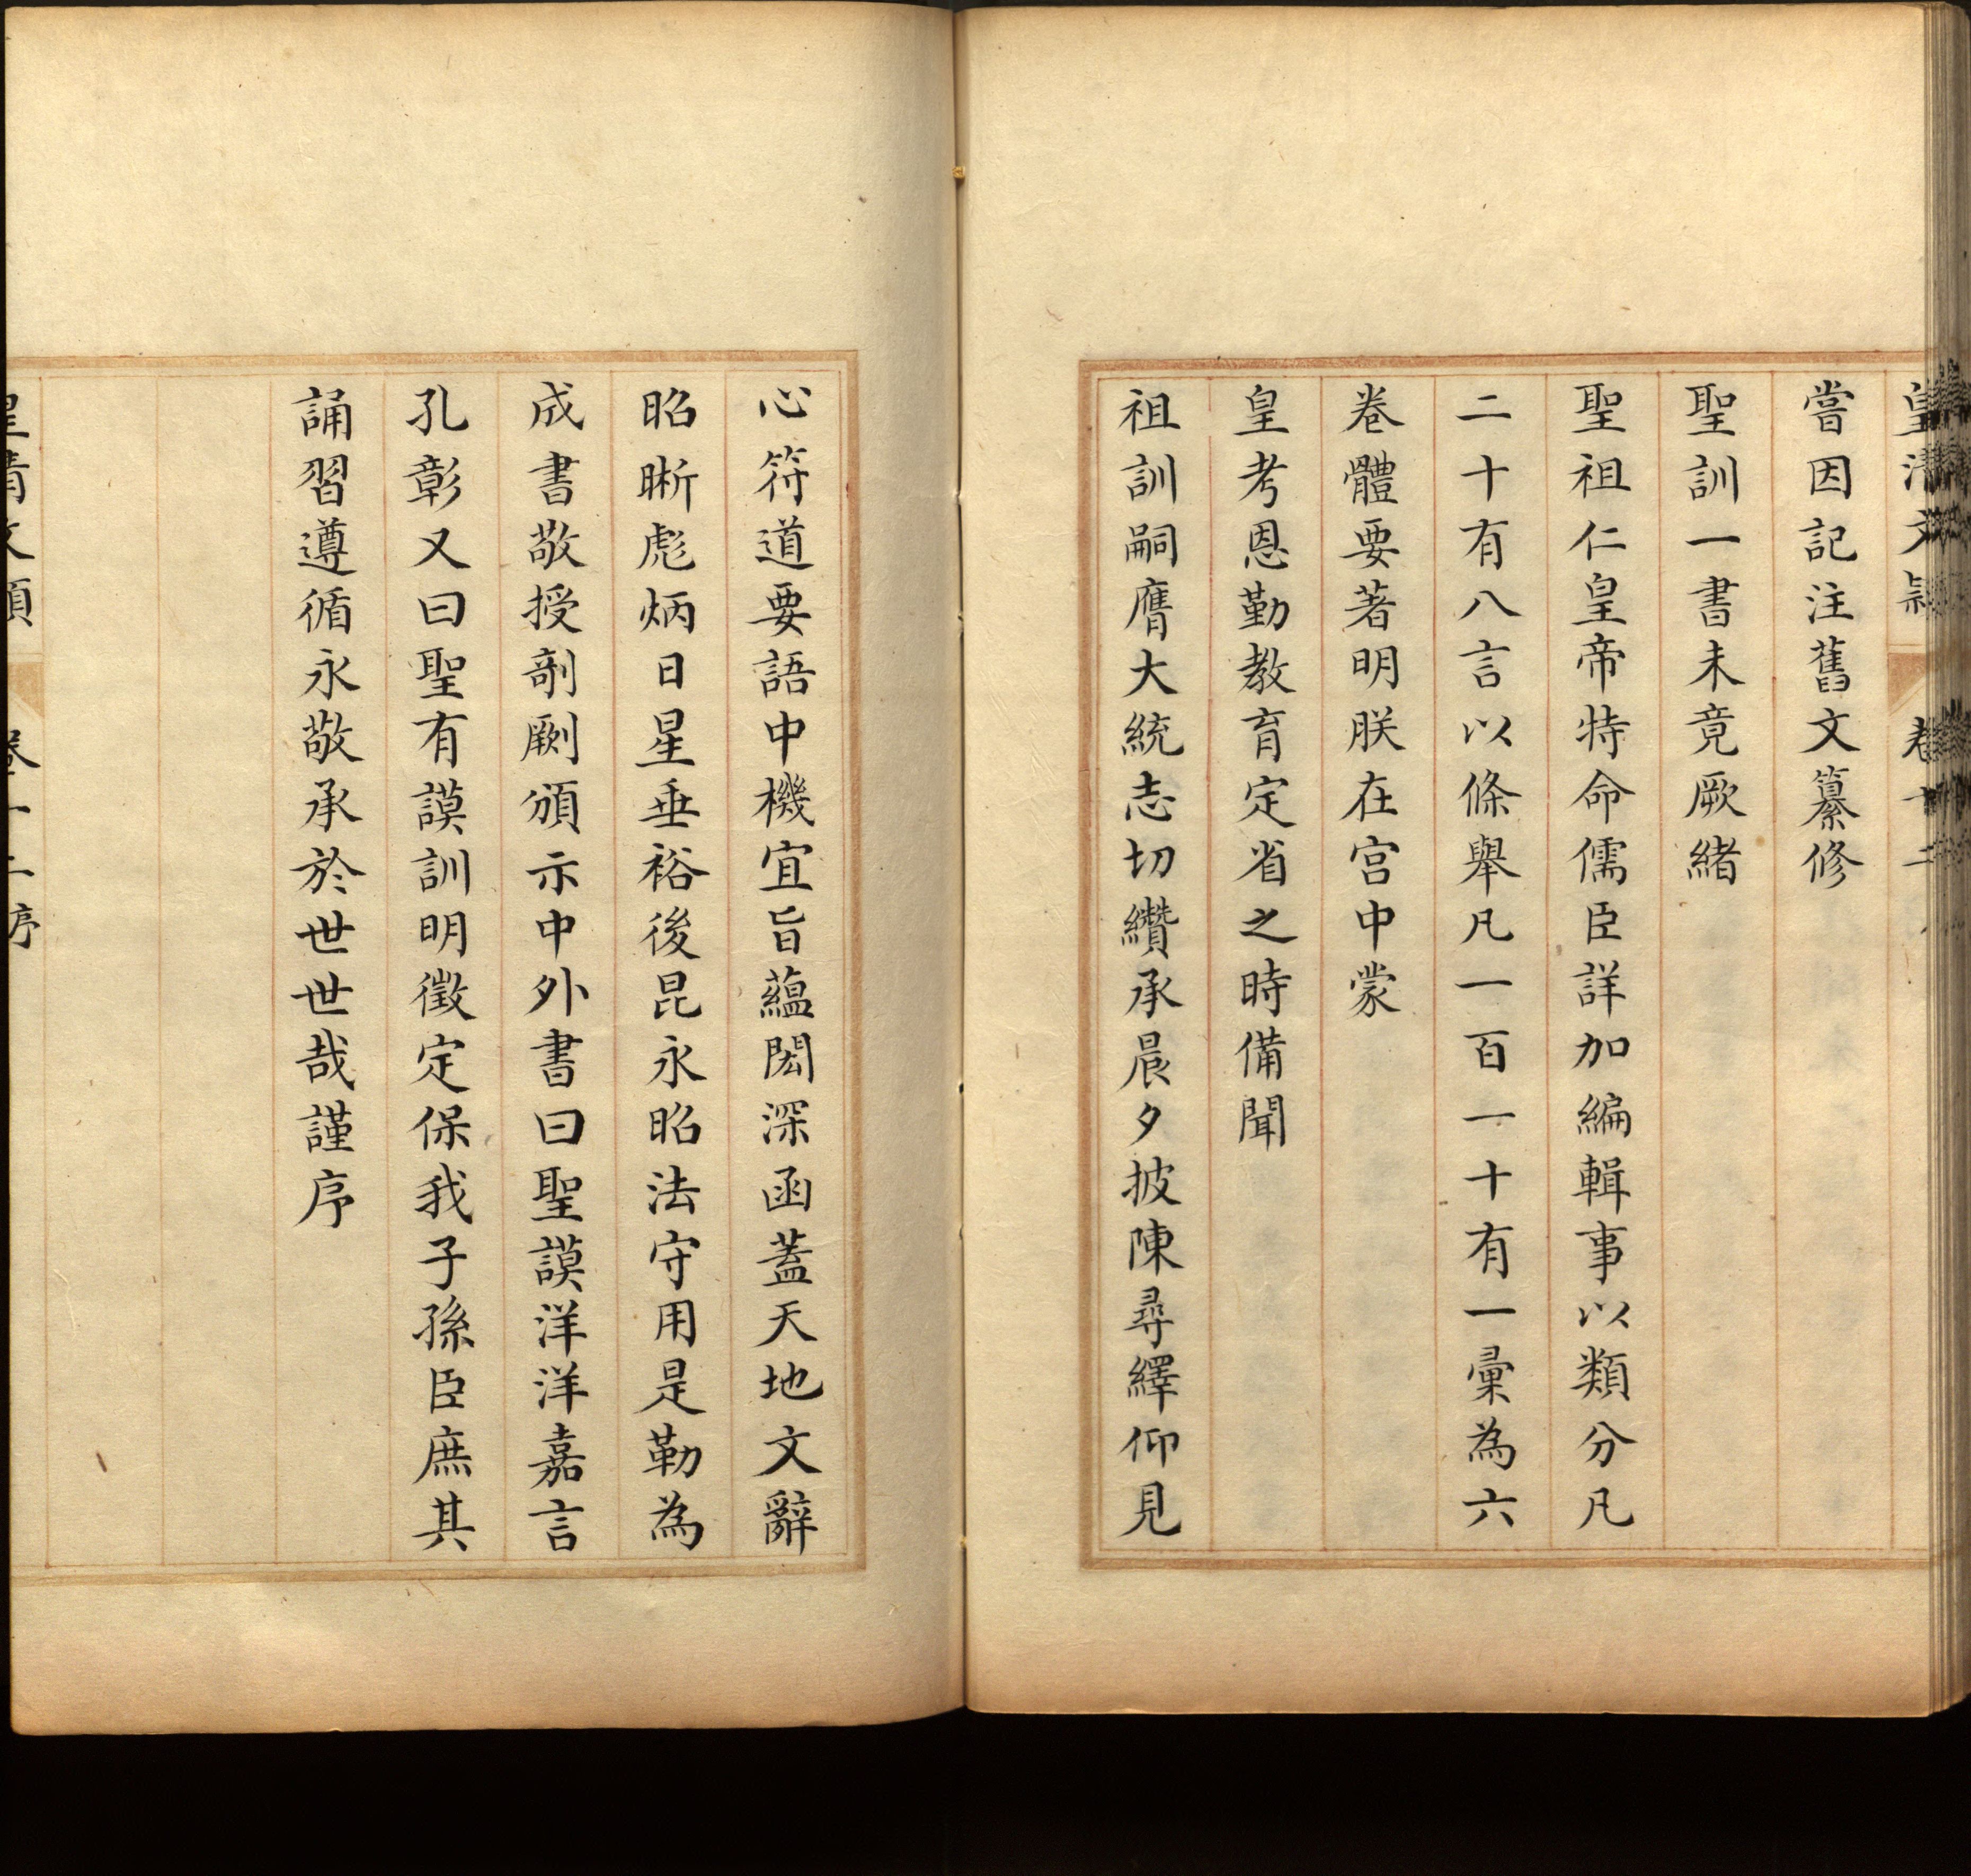 皇清文穎 卷十二
嘗因記注舊文纂修
聖訓一書未竟厥緒
聖祖仁皇帝特命儒臣詳加編輯事以類分凡
二十有八言以條舉凡一百一十有一彚為六
卷體要著明朕在宫中蒙
皇考恩勤教育定省之時備聞
祖訓嗣膺大統志切纘承晨夕披陳尋繹仰見
心符道要語中機宜旨藴閎深函蓋天地文辭
昭晰彪炳日星垂裕後昆永昭法守用是勒為
成書敬授剞劂頒示中外書曰聖謨洋洋嘉言
孔彰又曰聖有謨訓明徵定保我子孫臣庶其
誦習遵循永敬承於世世哉謹序
皇清文穎 卷十二 序